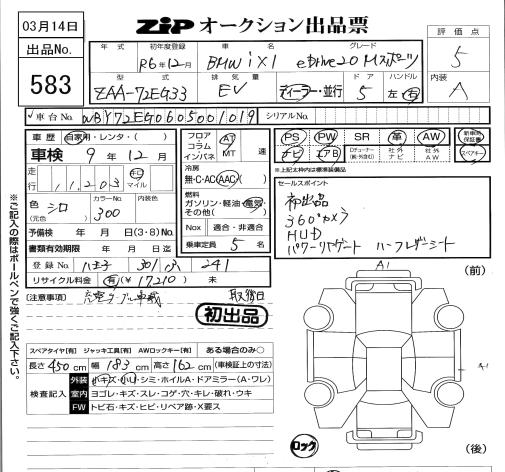 03月14日
出品No.
583
ZiP オークション出品票
年式 初年度登録 車名 グレード
R6年12月 BMW iX1 eDrive20 Mスポーツ
型式 排気量 ドア ハンドル
ZAA-72EG33 EV ディーラー・並行 5 左・右
評価点
5
内装
A
車台No. WBY72EG0605001019 シリアルNo.
車歴 自家用・レンタ・( )
車検 9年12月
走行 11,203 キロ マイル
色(元色) シロ カラーNo. 300 内装色
予備検 年 月 日(3・8)No.
書類有効期限 年 月 日迄
登録No. 八王子 301 ふ 241
リサイクル料金 有(¥17210) 未
フロア コラム インパネ AT MT 速
冷房
無・C・AC・AAC
燃料
ガソリン・軽油・電気
その他( )
Nox 適合・非適合
乗車定員 5 名
PS PW SR 革 AW 新車時保証書
ナビ エアB Dチューナー(純・外含む) 社外ナビ 社外AW スペアキー
※上記太枠内は標準装備品
セールスポイント
初出品
360°カメラ
HUD
パワーリヤゲート ハーフレザーシート
(注意事項) 充電ケーブル車載 取後日
初出品
スペアタイヤ[有] ジャッキ工具[有] AWロックキー[有] ある場合のみ○
長さ 450cm 幅 183cm 高さ 162cm (車検証上の寸法)
検査記入
外装 小キズ・小凹・シミ・ホイルA・ドアミラー(A・ワレ)
室内 ヨゴレ・キズ・スレ・コゲ・穴・キレ・破れ・ウキ
FW トビ石・キズ・ヒビ・リペア跡・X要ス
A1
(前)
A1
ロック
(後)
※ご記入の際はボールペンで強くご記入下さい。